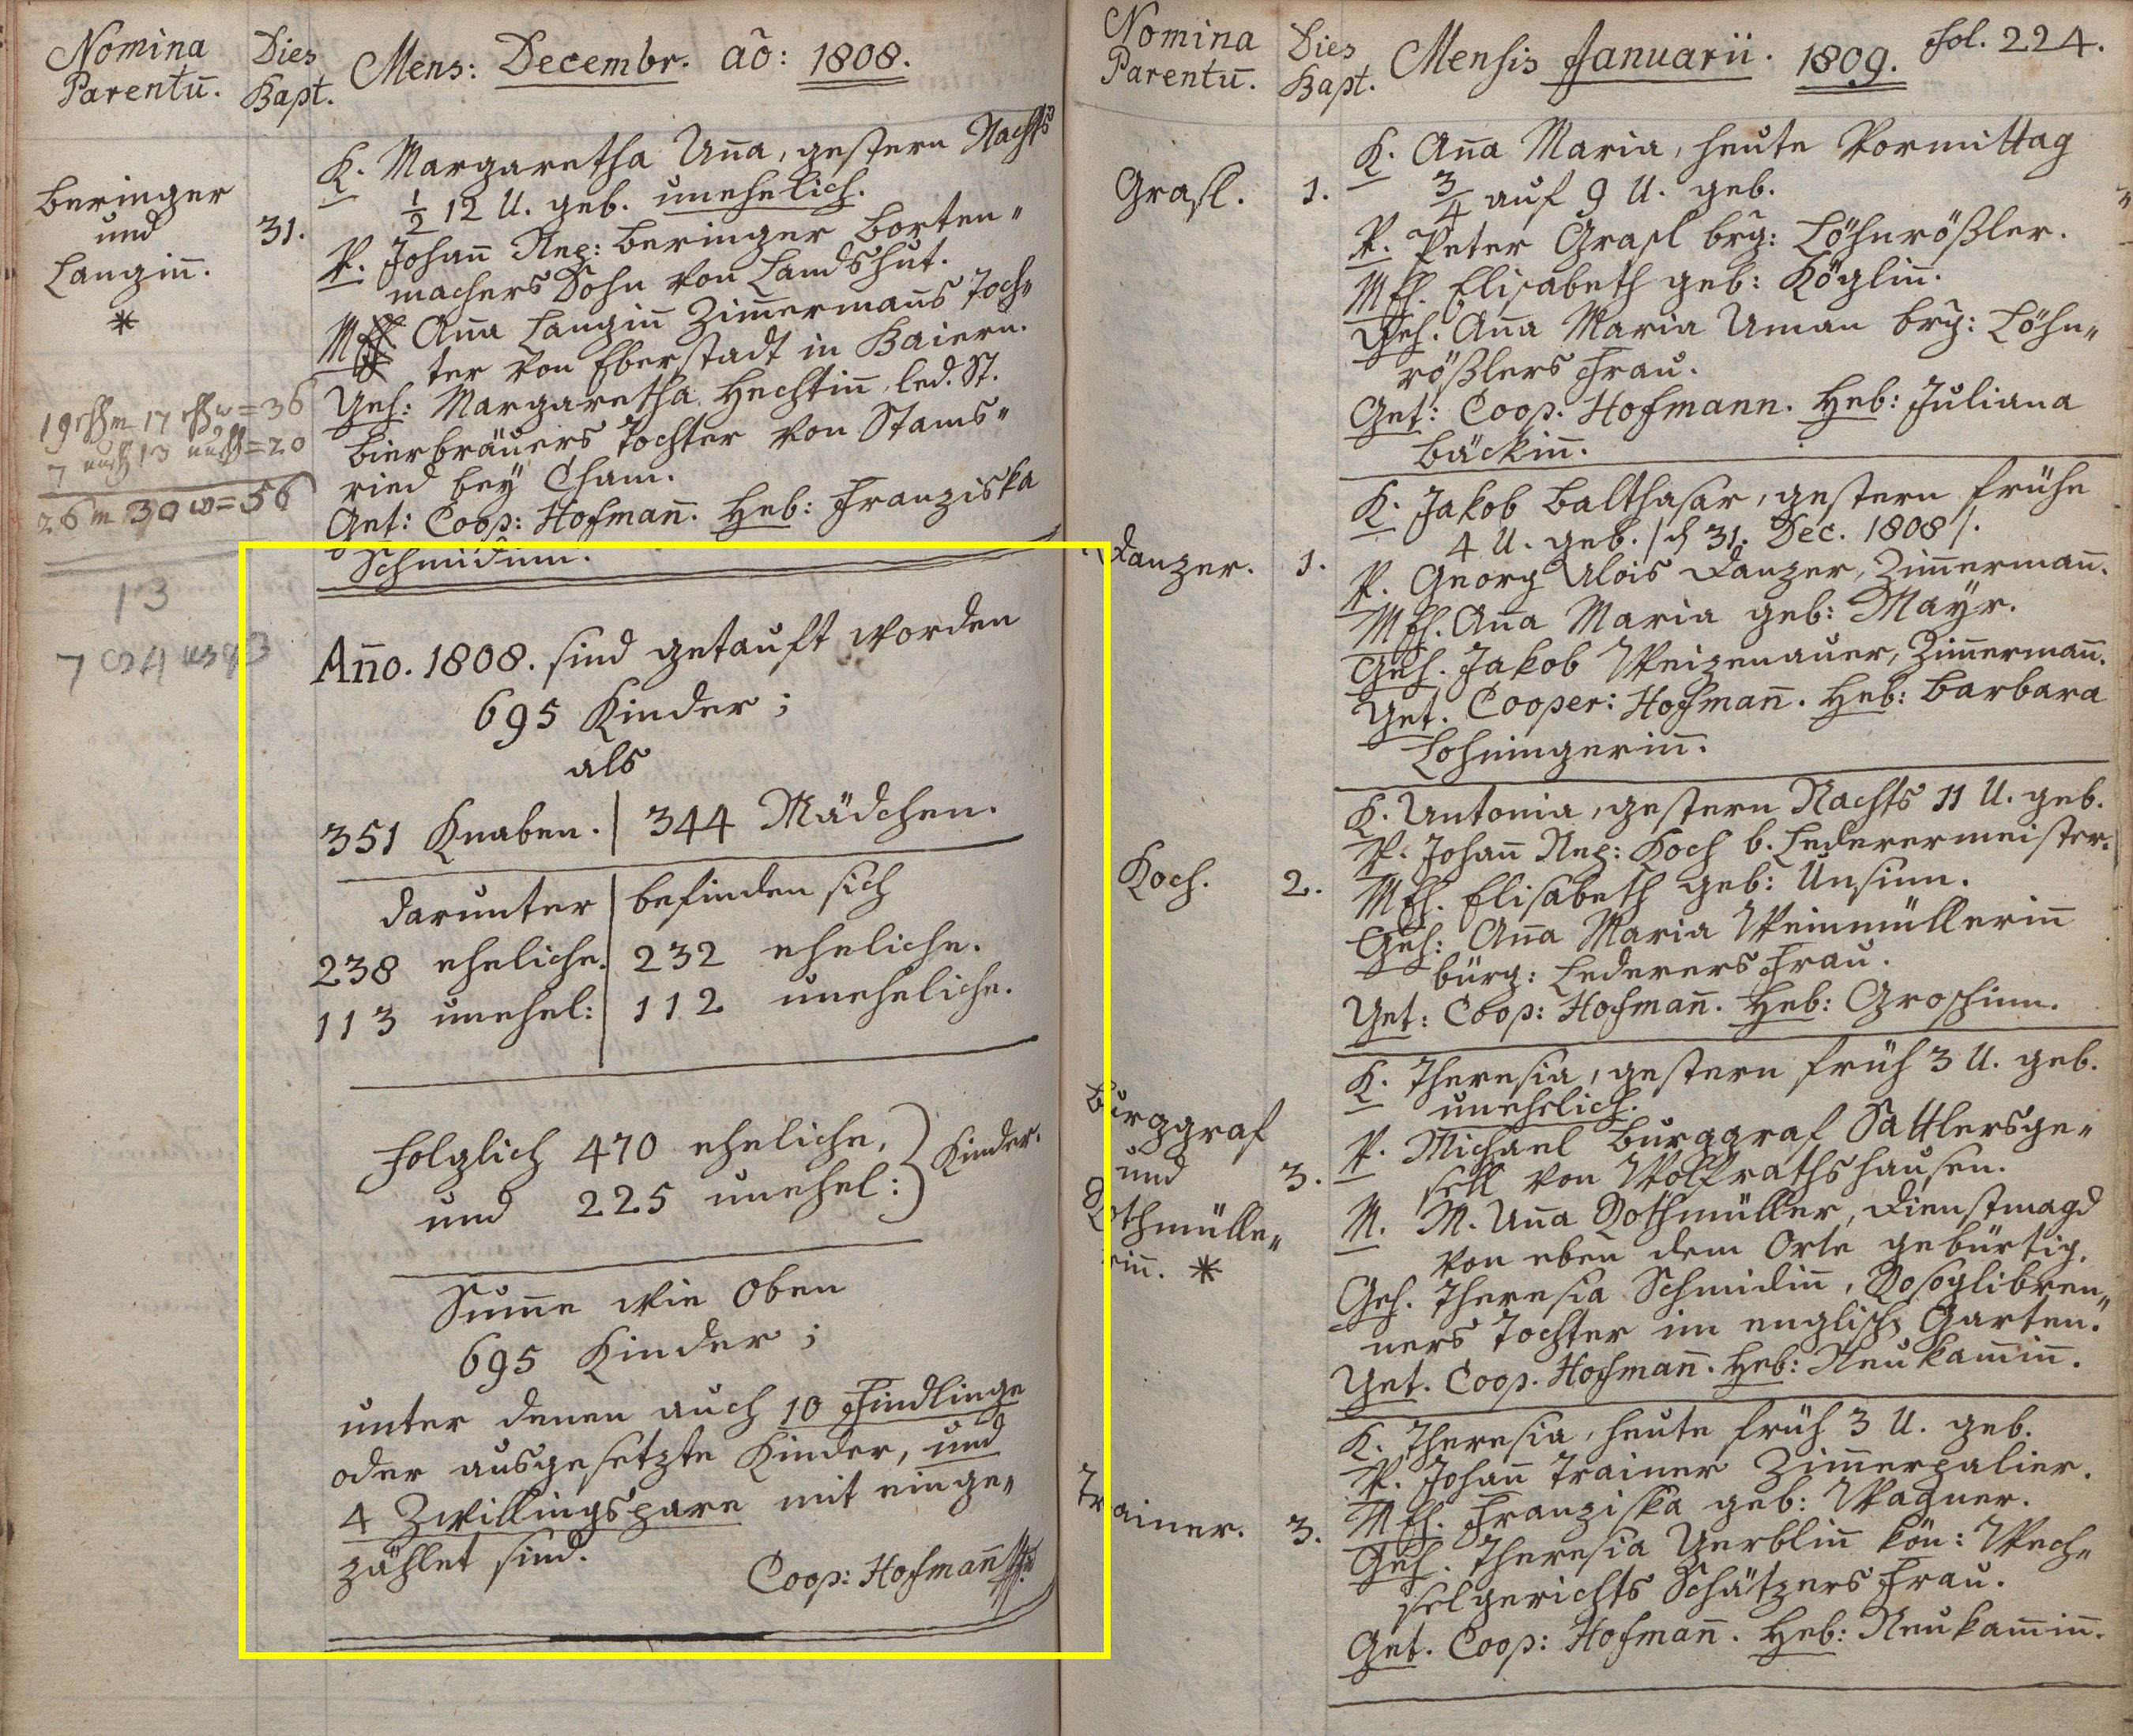 Nomina
Parentū.
Dies
Bapt.
Mens: Decembr. aõ: 1808.
Beringer
und
Langiñ.
*
31.
K. Margaretha Aña, gestern Nachts
½ 12 U. geb. unehelich.
P. Johañ Nep: Beringer Borten„
machers Sohn von Landshut.
M. Aña Langiñ Zim̄ermañs Toch„
ter von Eberstadt in Baiern.
Geh: Margaretha Hechtiñ, led. St.
Bierbräuers Tochter von Stams„
ried bey Cham.
Get: Coop: Hofmañ. Heb: Franziska
Schmidinn.
19 ehm 17 ehw = 36
7 13 = 20
26 m 30 w = 56
13
Año. 1808. sind getauft worden
695 Kinder;
als
351 Knaben. | 344 Mädchen.
darunter | befinden sich
238 eheliche. | 232 eheliche.
113 unehel: | 112 uneheliche.
Folglich 470 eheliche,
und 225 unehel: } Kinder.
Sum̄e wie oben
695 Kinder;
unter denen auch 10 Findlinge
oder ausgesetzte Kinder, und
4 Zwillingspare mit einge„
zählet sind.
Coop: Hofmañ
Nomina
Parentū.
Dies
Bapt.
Mensis Januarii. 1809.
Fol. 224.
Grasl.
1.
K. Aña Maria, heute Vormittag
¾ auf 9 U. geb.
P. Peter Grasl brg: Löhnrößler.
M Eh. Elisabeth geb: Kögliñ.
Geh. Aña Maria Uman brg: Löhn„
rößlers Frau.
Get: Coop. Hofmann. Heb: Juliana
Bäckiñ.
Danzer.
1.
K. Jakob Balthasar, gestern frühe
4 U. geb. /: d 31. Dec. 1808 /.
P. Georg Alois Danzer, Zim̄ermañ.
M Eh. Aña Maria geb: Mayr.
Geh. Jakob Weizenauer, Zim̄ermañ.
Get. Cooper: Hofmañ. Heb: Barbara
Lohningeriñ.
Koch.
2.
K. Antonia, gestern Nachts 11 U. geb.
P. Johañ Nep: Koch b. Lederermeister.
M Eh. Elisabeth geb: Unsinn.
Geh: Aña Maria Weinmülleriñ
bürg: Lederers Frau.
Get: Coop: Hofmañ. Heb: Groschinn.
Burggraf
und
Rothmülle„
riñ. *
3.
K. Theresia, gestern früh 3 U. geb.
unehelich.
P. Michael Burggraf Sattlersge„
sell von Wolfrathshausen.
M. M. Aña Rothmüller, Dienstmagd
von eben dem Orte gebürtig.
Geh. Theresia Schmidiñ, Rosoglibren„
ners Tochter im englisch Garten.
Get. Coop. Hofmañ. Heb: Neukam̄iñ.
Trainer.
3.
K. Theresia, heute früh 3 U. geb.
P. Johañ Trainer Zim̄erpalier.
M Eh. Franziska geb: Wagner.
Geh. Theresia Gerbliñ kön: Wech„
selgerichts Schätzers Frau.
Get. Coop: Hofmañ. Heb: Neukam̄iñ.